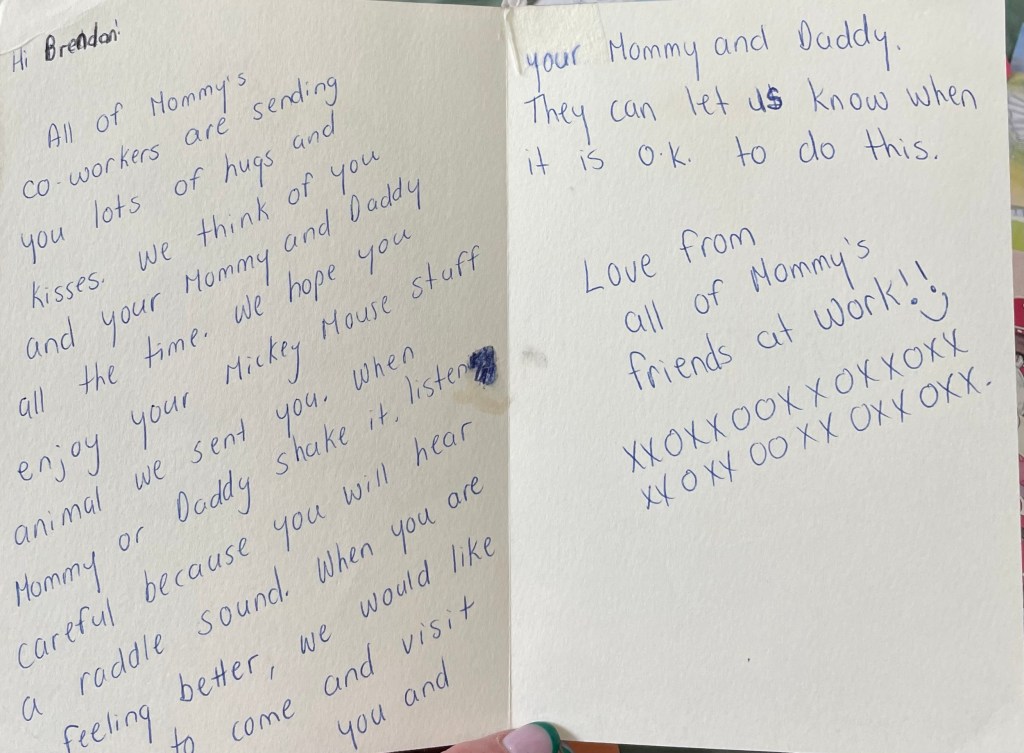 Hi Brendan!
All of Mommy's
co-workers are sending
you lots of hugs and
kisses. We think of you
and your Mommy and Daddy
all the time. We hope you
enjoy your Mickey Mouse stuff
animal we sent you. When
Mommy or Daddy shake it, listen
careful because you will hear
a raddle sound. When you are
feeling better, we would like
to come and visit
you and
your Mommy and Daddy.
They can let us know when
it is O.K. to do this.
Love from
all of Mommy's
friends at work!!
XXOXXOOXXOXXOXX
XXOXXOOXXOXXOXX.